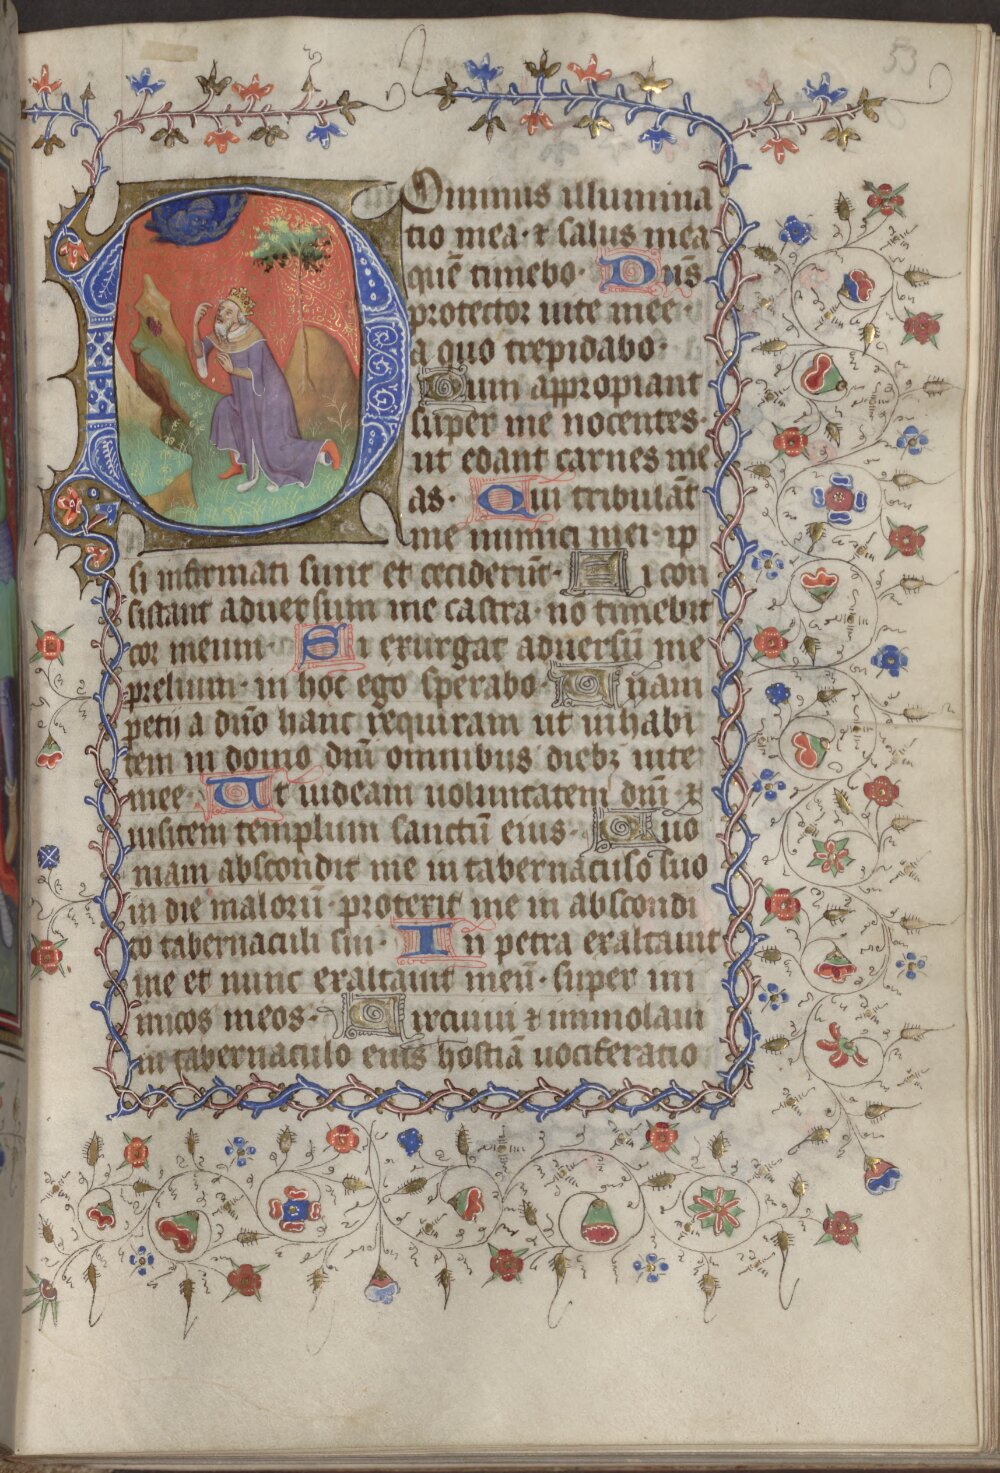 53
Dominus illumina
tio mea · ⁊ salus mea
quē timebo · Dn̄s
protector uite mee ·
a quo trepidabo ·
Dum appropiant
super me nocentes ·
ut edant carnes me
as · Qui tribulāt
me inimici mei · ip
si infirmati sunt et ceciderūt · Si con
sistant aduersum me castra · nō timebit
cor meum · Si exurgat aduersū me
prelium · in hoc ego sperabo · Unam
petii a dn̄o hanc requiram ut inhabi
tem in domo dn̄i omnibus diebꝫ uite
mee · Ut uideam uoluntatem dn̄i · ⁊
uisitem templum sanctū eius · Quo
niam abscondit me in tabernaculo suo
in die malorū · protexit me in abscondi
to tabernaculi sui · In petra exaltauit
me et nunc exaltauit meū · super ini
micos meos · Circuiui ⁊ immolaui
in tabernaculo eius hostiā uociferatio